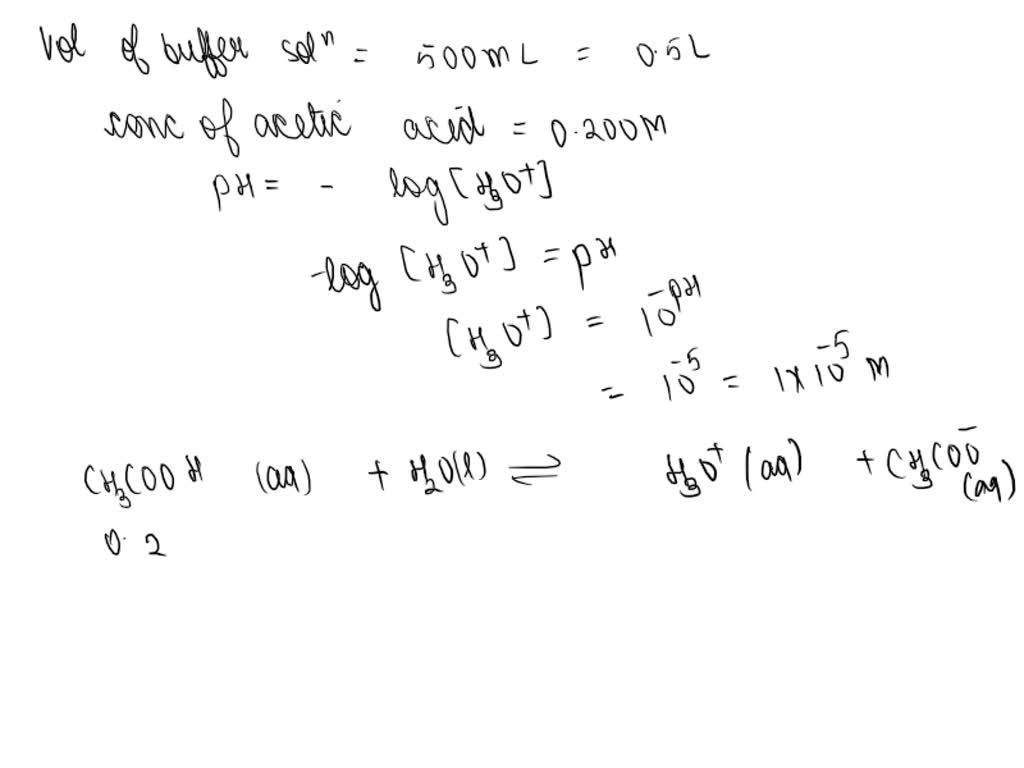 Vol of buffer solⁿ = 500mL = 0.5L
conc of acetic acid = 0.200M
pH = - log [H₃O⁺]
-log [H₃O⁺] = pH
[H₃O⁺] = 10^-pH
= 10⁻⁵ = 1×10⁻⁵ M
CH₃COOH (aq) + H₂O(l) ⇌ H₃O⁺ (aq) + CH₃COO⁻ (aq)
0.2